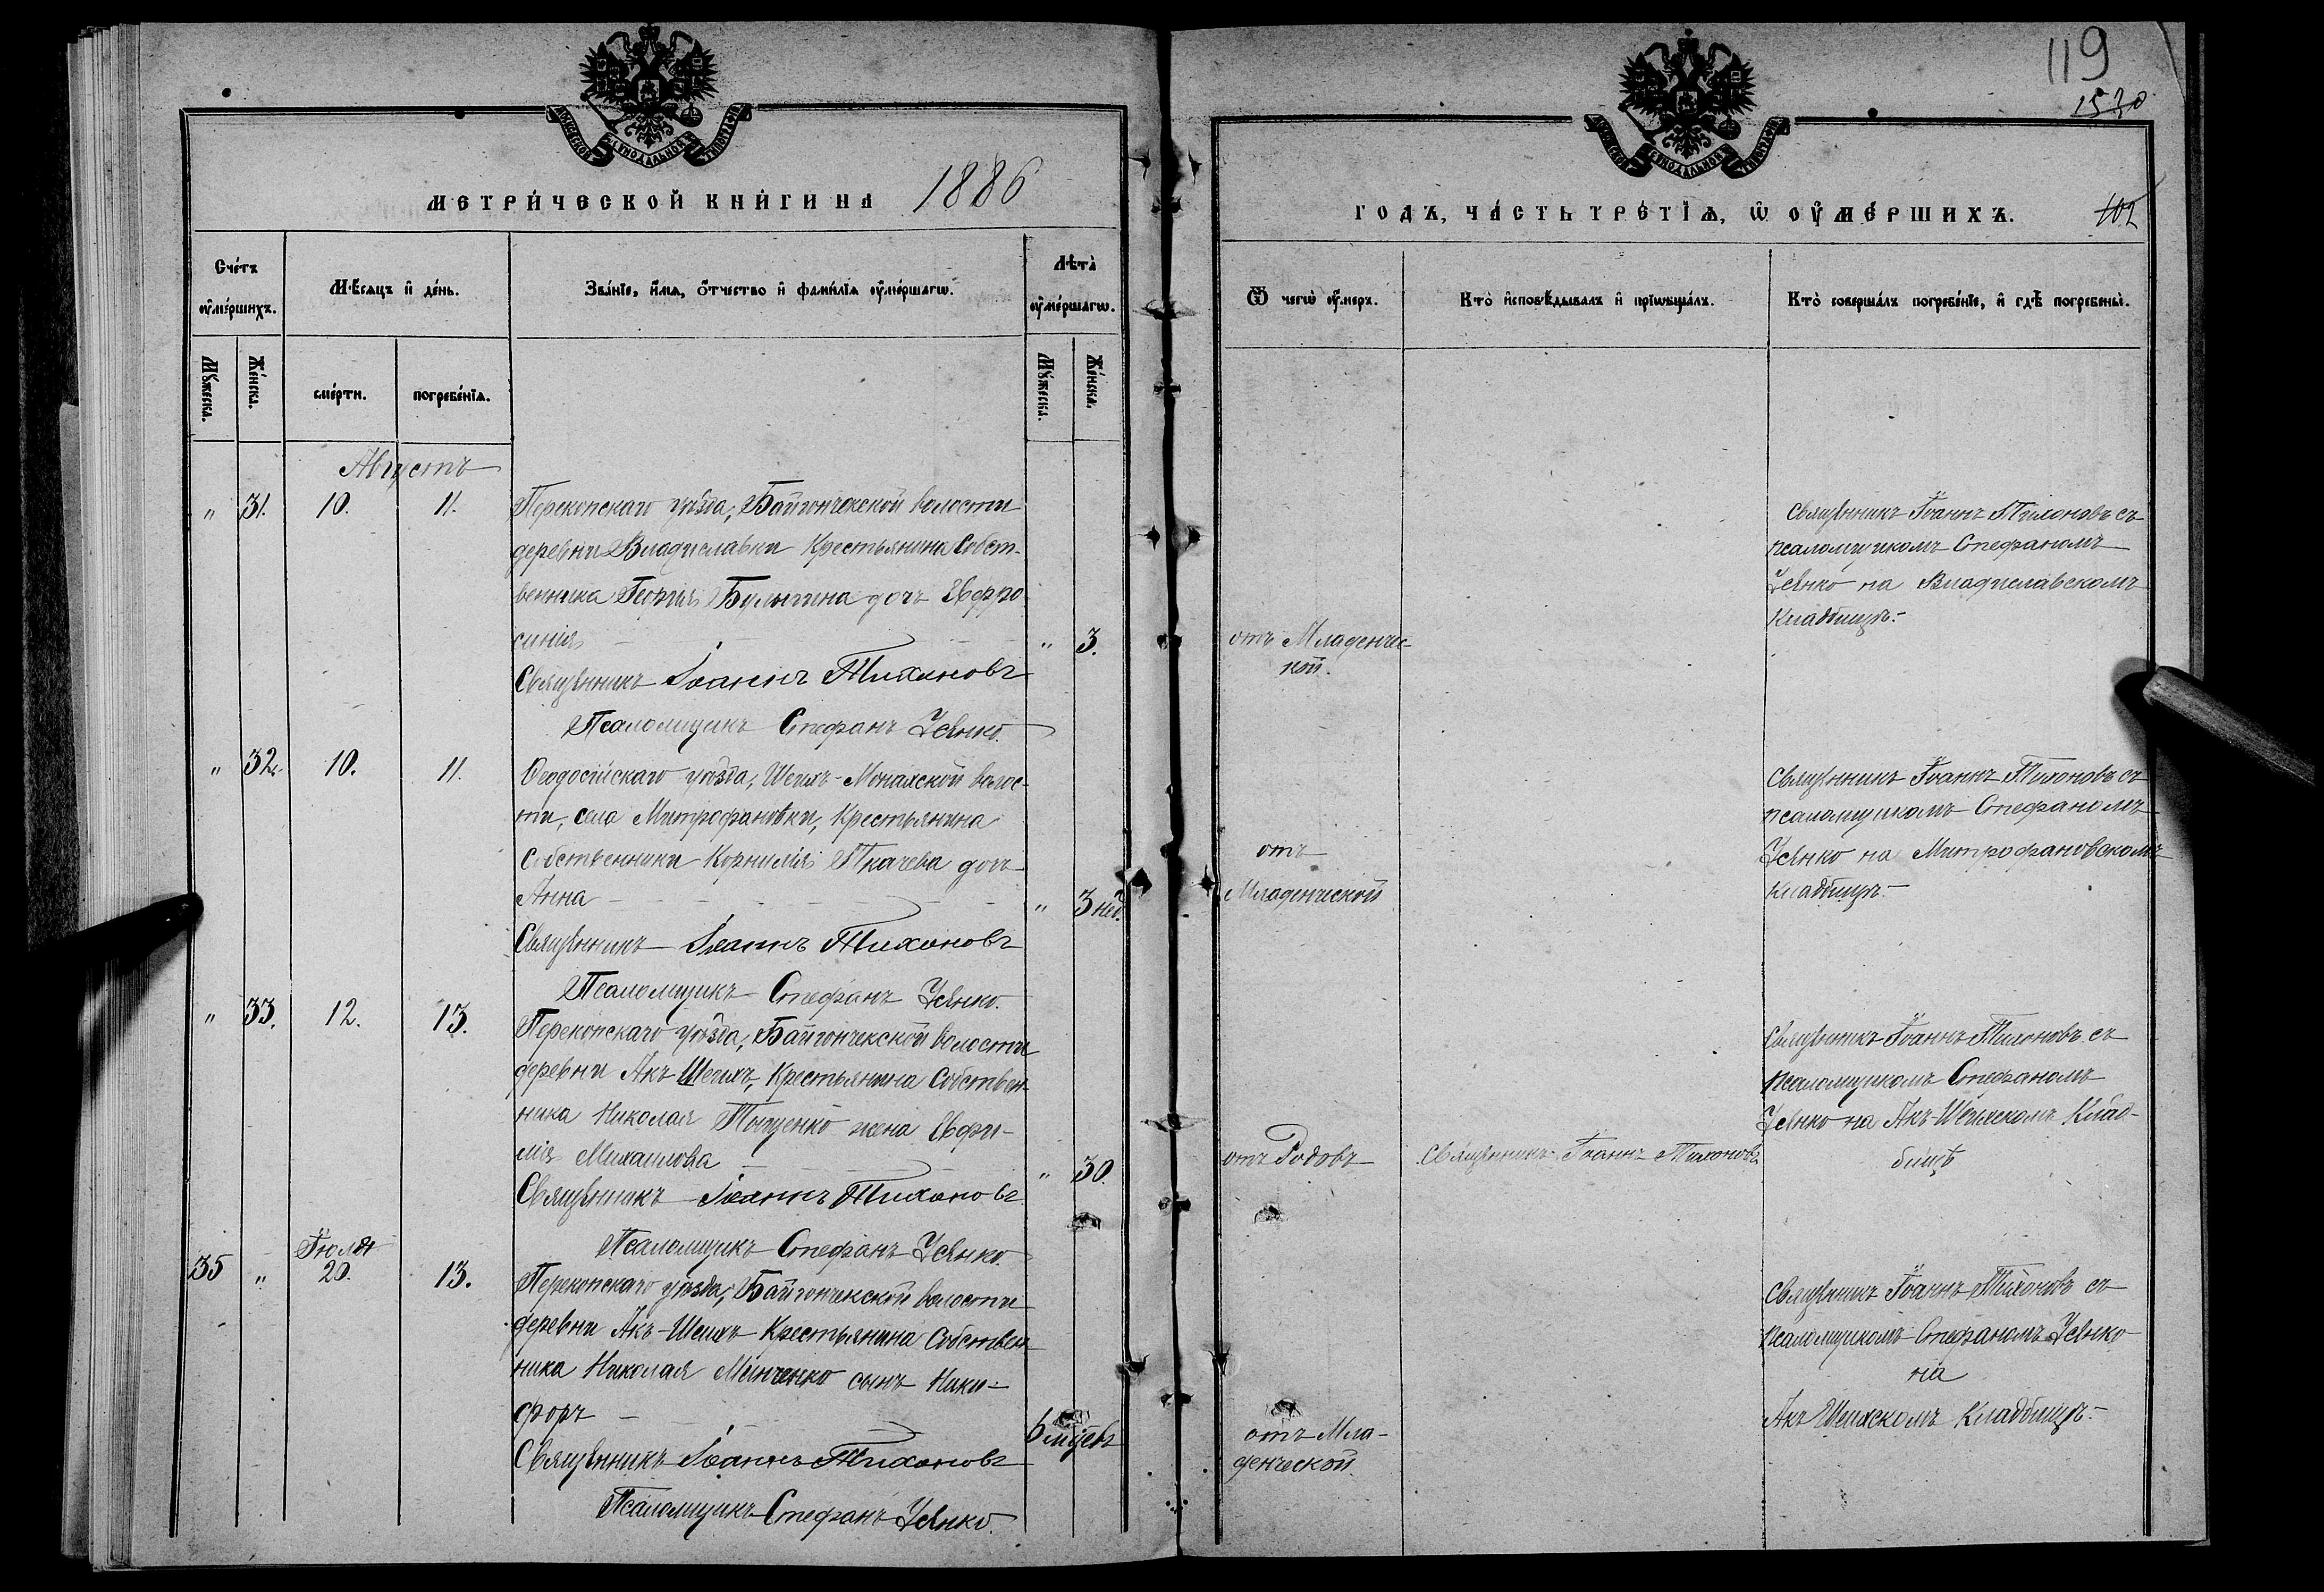 119
1530
МОСКОВСКОЙ СѴНОДАЛЬНОЙ ТИПОГРАФІИ
МОСКОВСКОЙ СѴНОДАЛЬНОЙ ТИПОГРАФІИ
МЕТРИ́ЧЕСКОЙ КНИ́ГИ НА 1886
ГОДЪ, ЧА́СТЬ ТРЕ́ТІѦ, Ѡ ОУ҆МЕ́РШИХЪ. 102
Сче́тъ оу҆ме́ршихъ.
Мѣ́сяцъ и҆ де́нь.
Зва́нїе, и҆́мя, о҆́тчество и҆ фами́лїя оу҆ме́ршагѡ.
Лѣ́та оу҆ме́ршагѡ.
Ѿ чегѡ̀ оу҆́меръ.
Кто̀ и҆сповѣ́дывалъ и҆ прїѡбща́лъ.
Кто̀ соверша́лъ погребе́нїе, и҆ гдѣ̀ погребены̀.
Мꙋ́жеска.
Же́нска.
сме́рти.
погребе́нїя.
Мꙋ́жеска.
Же́нска.
Августъ
" 31. 10. 11.
Перекопскаго уѣзда, Байгончекской волости
деревни Владиславки Крестьянина Собст-
венника Георгія Булыгина дочь Ефро
синія " 3.
Священникъ Іоаннъ Тихоновъ
Псаломщикъ Стефанъ Усянко.
отъ Младенчес-
кой.
Священникъ Іоаннъ Тихоновъ съ
псаломщикомъ Стефаномъ
Усянко на Владиславскомъ
Кладбищѣ.-
" 32. 10. 11.
Ѳеодосійскаго уѣзда, Шеихъ-Монахской волос-
ти, села Митрофановки, Крестьянина
Собственника Корнилія Ткачева дочь
Анна " 3 нед.
Священникъ Іоаннъ Тихоновъ
Псаломщикъ Стефанъ Усянко.
отъ
Младенческой
Священникъ Іоаннъ Тихоновъ съ
псаломщикомъ Стефаномъ
Усянко на Митрофановскомъ
кладбищѣ-
" 33. 12. 13.
Перекопскаго уѣзда, Байгончекской волости
деревни Акъ Шеихъ, Крестьянина Собствен-
ника Николая жена Евфи-
мія Михаилова " 30.
Священникъ Іоаннъ Тихоновъ
Псаломщикъ Стефанъ Усянко.
отъ Родовъ
Священникъ Іоаннъ Тихоновъ
Священникъ Іоаннъ Тихоновъ съ
псаломщикомъ Стефаномъ
Усянко на Акъ-Шеихскомъ Клад-
бищѣ
35 " Іюля 20. 13.
Перекопскаго уѣзда, Байгончекской волости
деревни Акъ-Шеихъ Крестьянина Собствен
ника Николая Минченко сынъ Ники-
форъ 6 мѣсяц
Священникъ Іоаннъ Тихоновъ
Псаломщикъ Стефанъ Усянко.
отъ Мла-
денческой.
Священникъ Іоаннъ Тихоновъ съ
псаломщикомъ Стефаномъ Усянко
на
Акъ Шеихскомъ Кладбищѣ.-